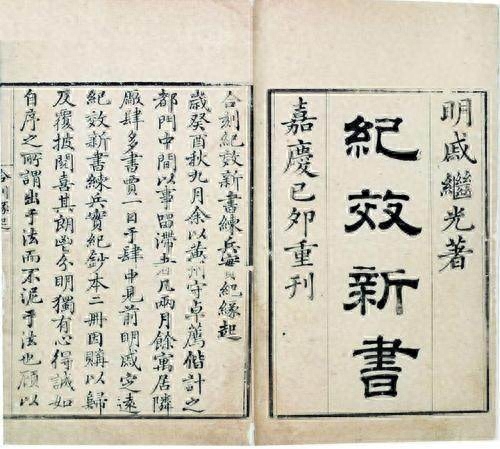 明戚繼光著
紀效新書
嘉慶己卯重刊
合刻紀效新書練兵實紀緣起
歲癸酉秋九月余以黃州守卓薦偕計之
都門中間以事留滯者凡兩月餘寓居隣
廠肆多書賈一日于肆中見前明戚定遠
紀效新書練兵實紀鈔本二冊因購以歸
反覆披閱喜其朗鬯分明獨有心得誠如
自序之所謂出于法而不泥于法也顧以
合刻緣起